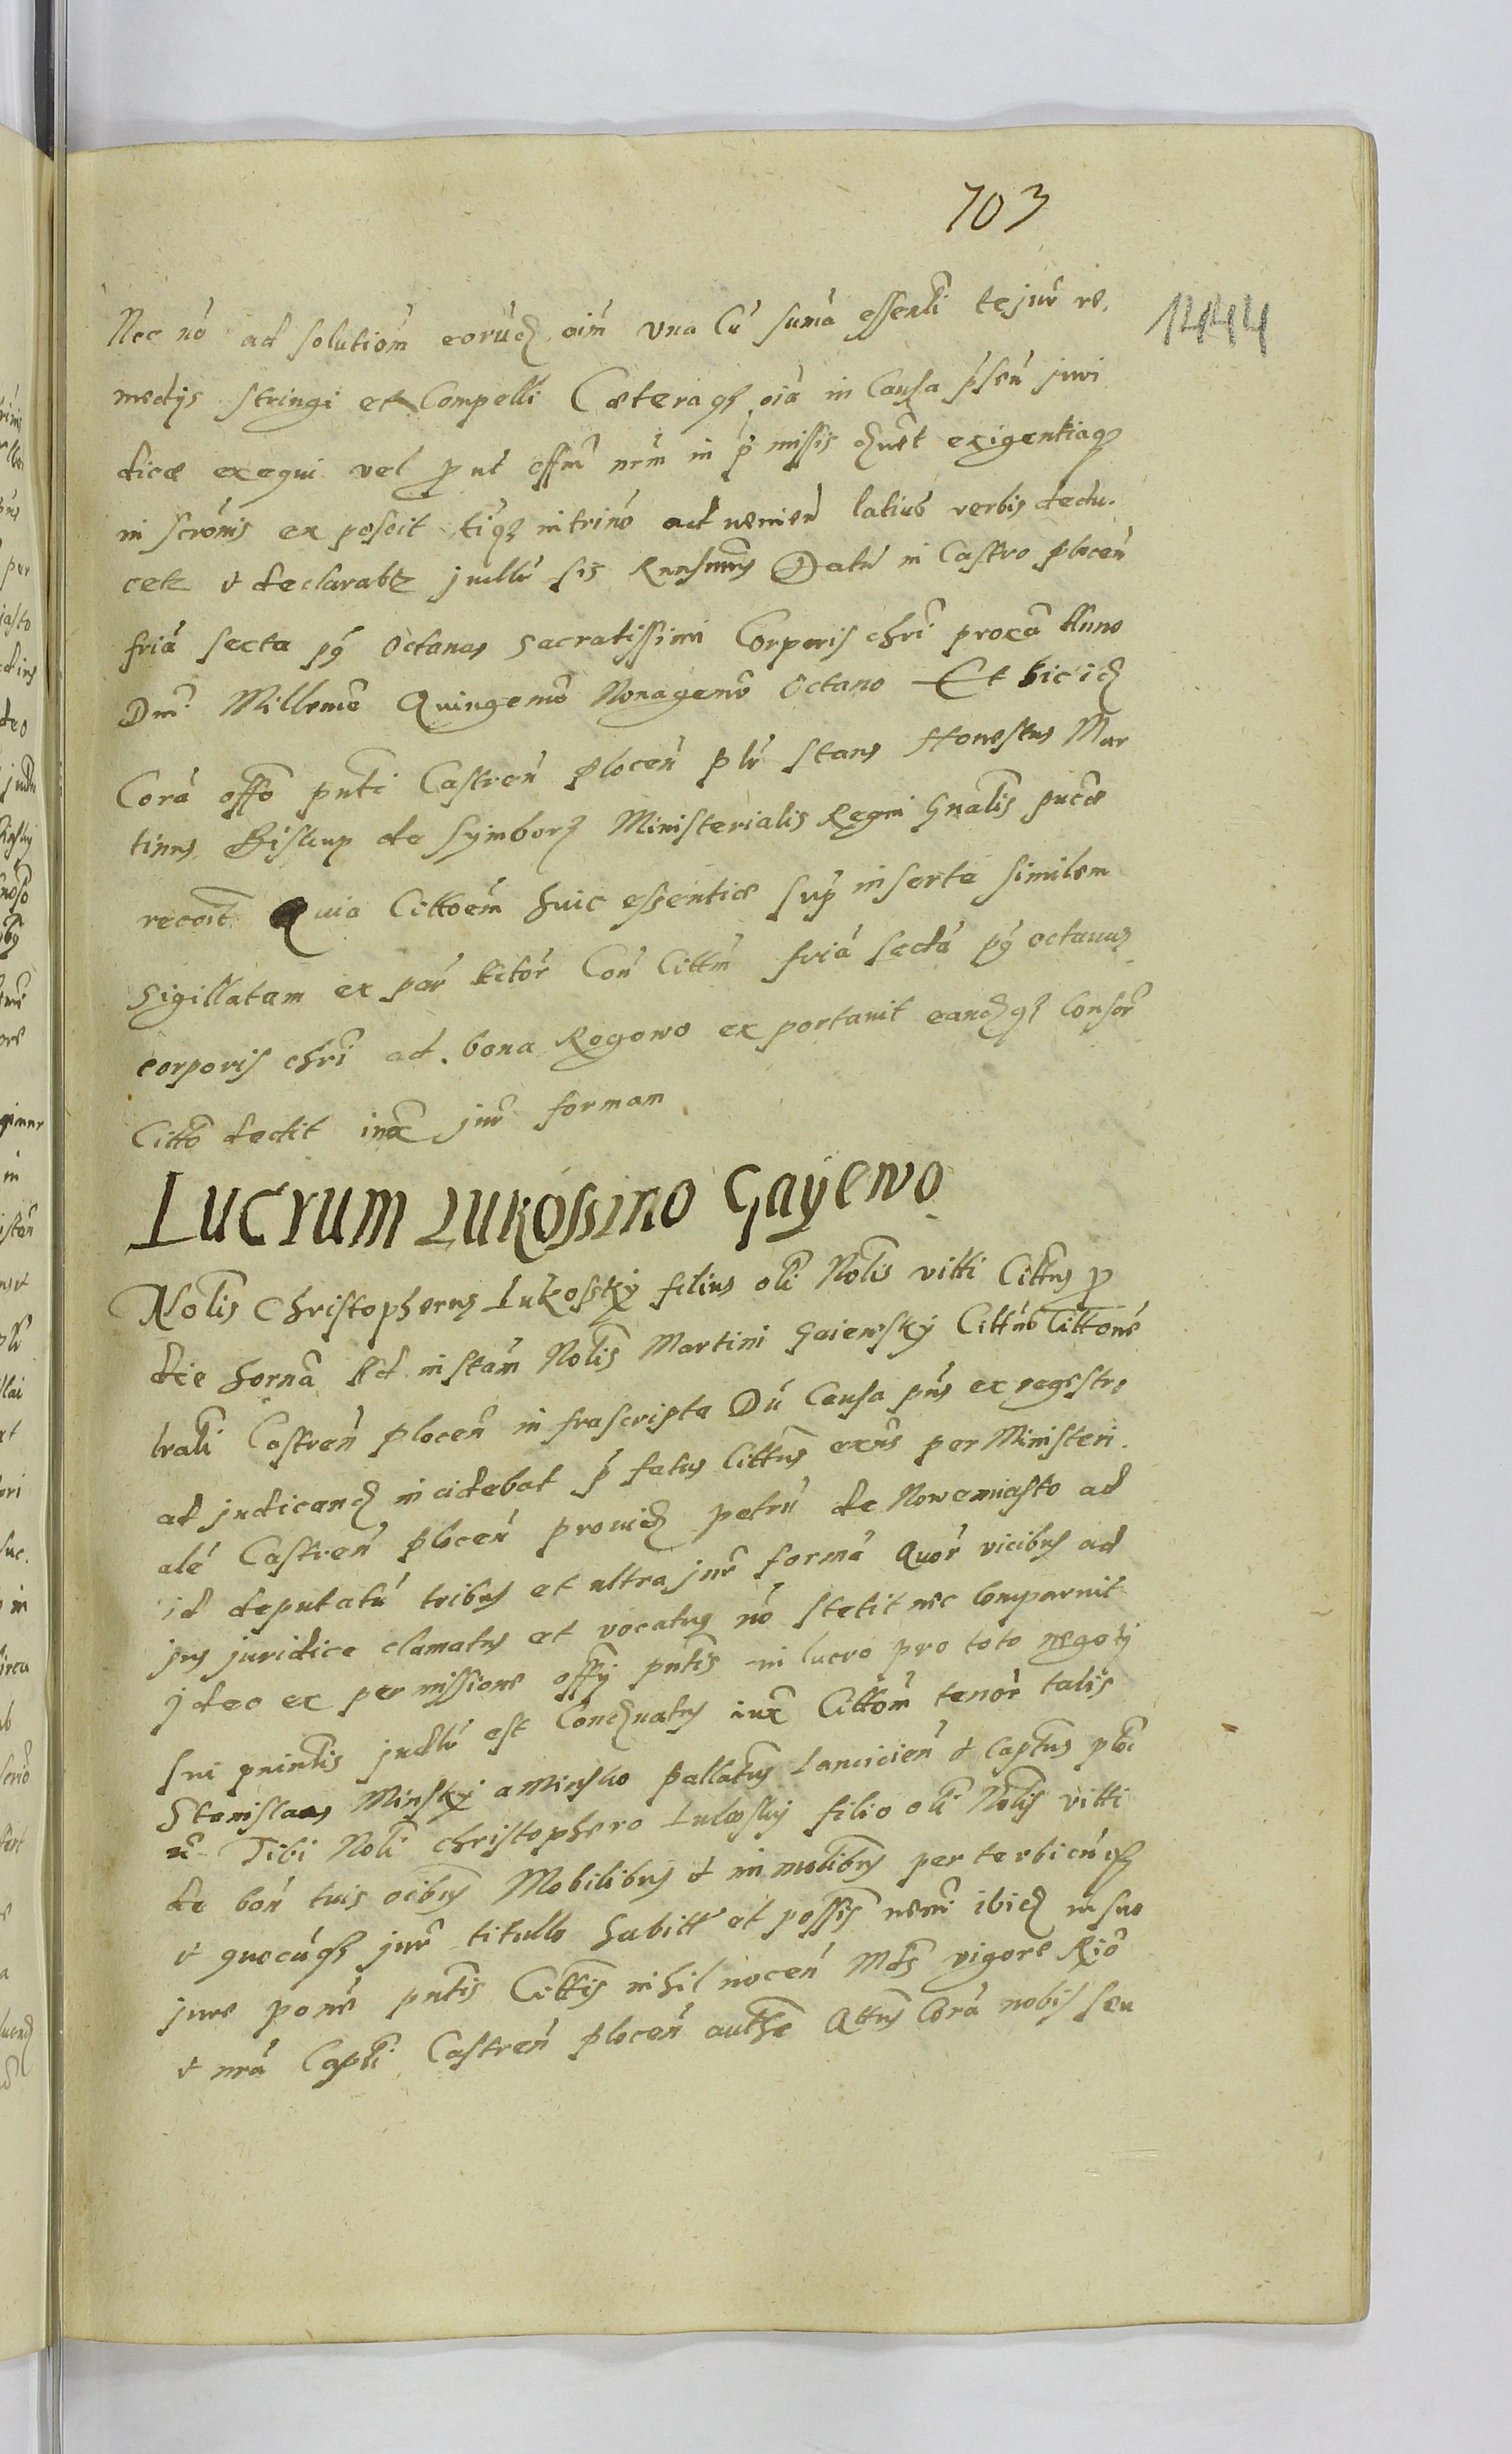 703
1444
Nec nō ad solutiōm eorūd oīm vna Cū sumā essenti te jur re.
medÿs stringi et Compelli Cæteraqz oīa in Causa p̄sen juri
dicæ exequi vel put offm nrm in pmissis exigentiaqz
in scrōnis exposcit tiqz intrino ad venien latius verbis dedu.
cetz & declarabtz judlr sis Rnnsurus Datū in Castro plocen
friā sexta pq Octauas Sacratissimi Corporis chri proxā Anno
Dni Millemo Quingemo Nonagemo Octauo Et hic id
Corā offo pnti Castren plocen plr stans Honestus Mar
tinus Biskup de Symborz Ministerialis Regni Gnalis
recoīt Quia Cittōem huic essentiæ sup inserte similem
Sigillatam ex par Actor Con Cittm friā sectā pq octauas
corporis chri ad bona Rogowo exportauit eandqz Consor
Citto dedit iux jur formam
Lucrum Lukossino Gaÿewo
Nolis Christopherus Lukosskÿ filius oli Nolis vitti Cittus p
die hornā Ad instām Nolis Martini Gaiewskÿ Cittus Cittone
trali Castren plocen infrascripta Dū Causa pns ex regestro
ad judicand incidebat pfatus Cittus exns per Ministeri.
alē Castren plocen prouid petrū de Nowemiasto ad
id deputatū tribus et ultra jur formā Quor vicibus ad
jus juridice clamatus et vocatus nō stetit nec Comparuit
jdeo ex permissione offÿ pntis in lucro pro toto negotÿ
sui judlr est Condnatus iux Cittōm tenor talis
Stanislaus Minskÿ a Minsko pallatus Lancicien & Captus
Tibi Noli Christophero Lukosskÿ filio oli Nolis vitti
de bon tuis oibus Mobilibus & inmolibus per te vbicūqz
& quocūqz jur titullo habitt et possis ibid in suo
jure pone pntis Cittis nihil nocen Mds vigore Rio
& nrā Capli Castren plocen autthe Qttus Corā nobis seu